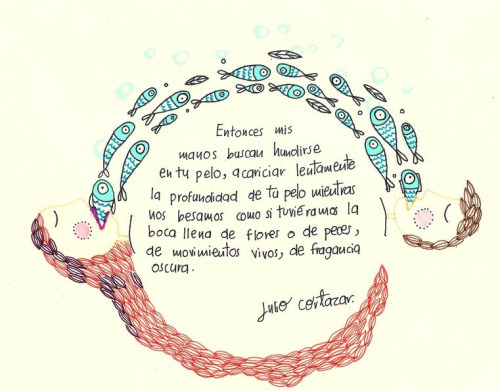 Entonces mis
manos buscan hundirse
en tu pelo, acariciar lentamente
la profundidad de tu pelo mientras
nos besamos como si tuviéramos la
boca llena de flores o de peces,
de movimientos vivos, de fragancia
oscura.
Julio cortazar.